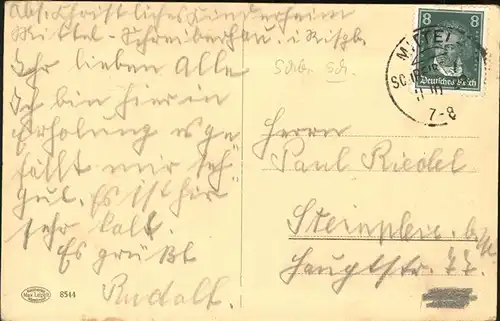 Abs. Christliches Kinderheim
Mittel-Schreiberhau i. Rsgb.
Ihr lieben Alle
Ich bin hier in
Erholung es ge-
fällt mir sehr
gut. Es ist hir
sehr kalt.
Es grüßt
Rudolf.
8544
8 8
Deutsches Reich
MITTEL
SCHREIB
7-8
Herrn
Paul Riedel
Steinpleis b/
Hauptstr. 77.